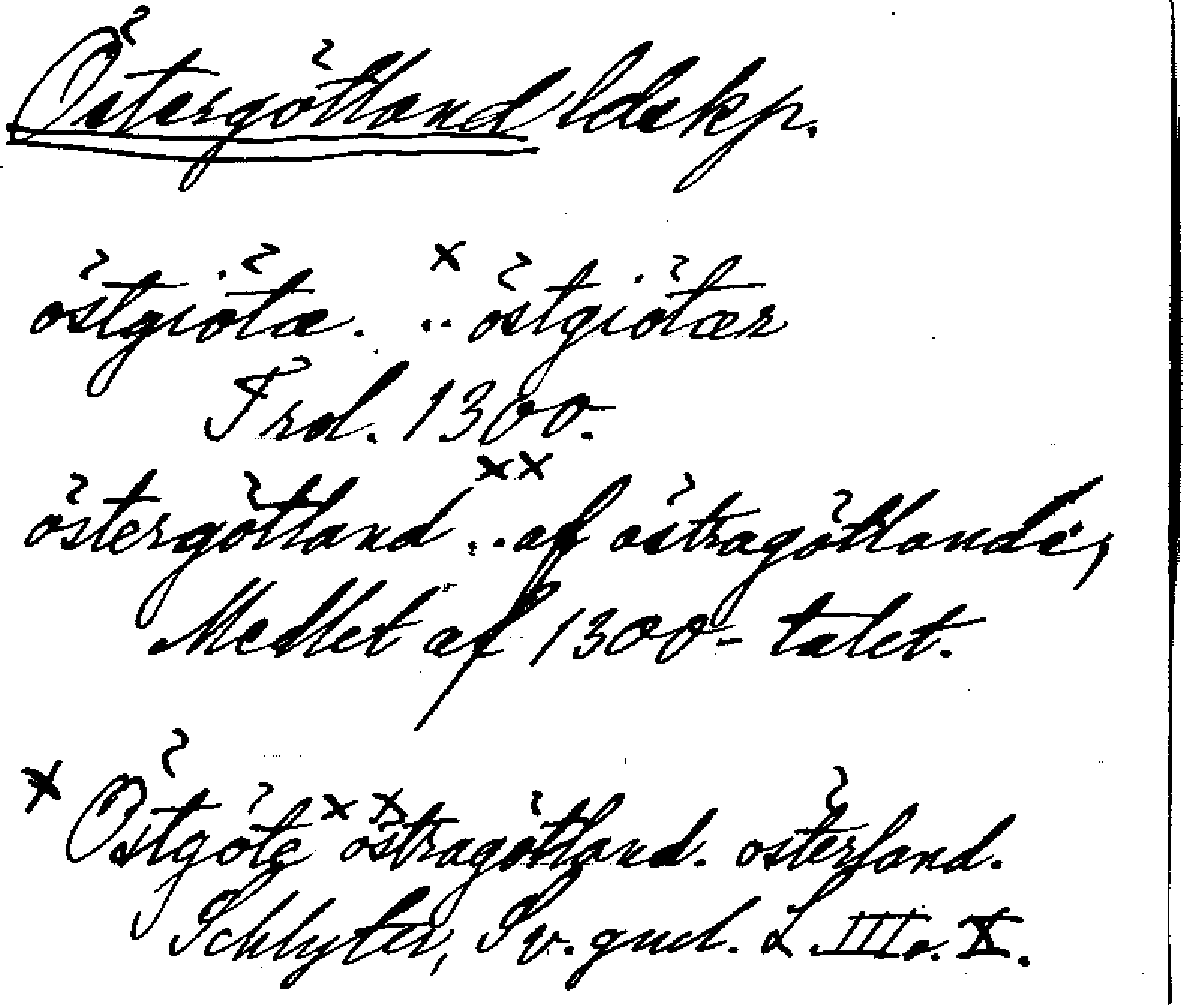 Östergötland ldskp.
östgiötæ. .. ˣöstgiötær
Frd. 1300.
östergötland ..ˣˣaf östragötlande,
Medlet af 1300-talet.
x Östgöte xx östragötland. österland.
Schlyter, Sv. gml. L. III o. X.